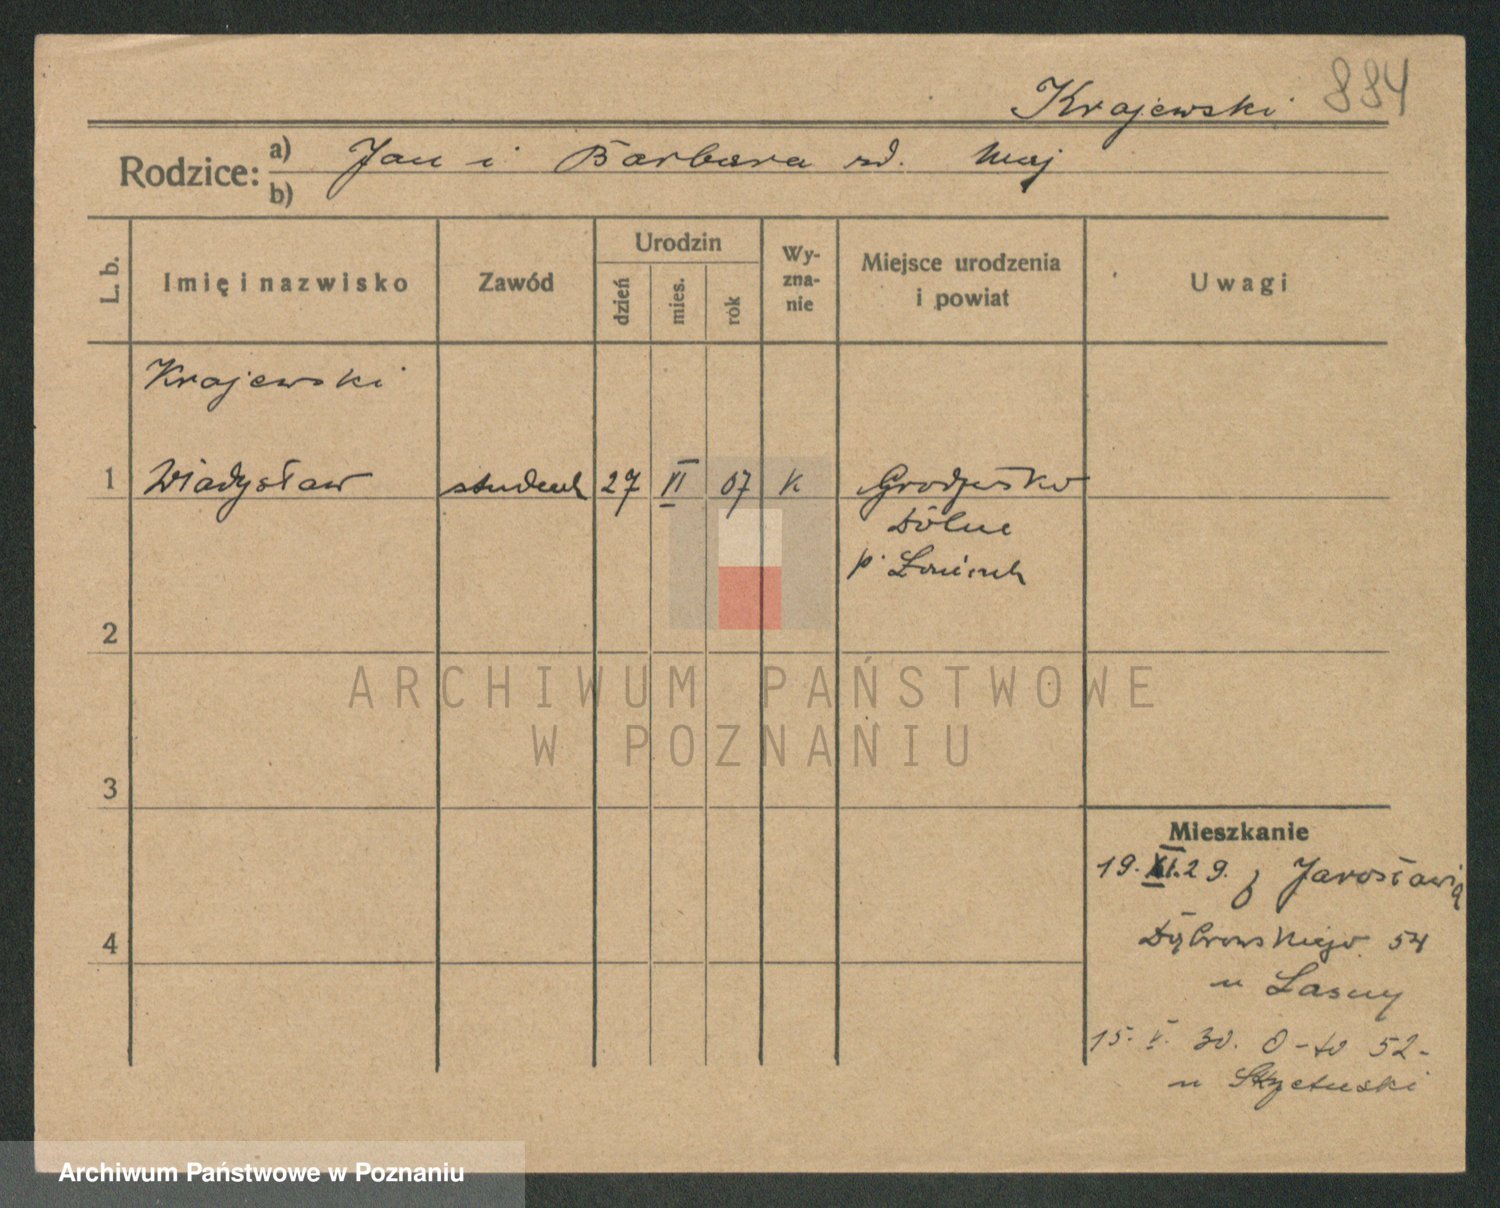 Krajewski 884
Rodzice: a) Jan i Barbara zd. Maj
b)
L. b.
Imię i nazwisko
Zawód
Urodzin
dzień
mies.
rok
Wy-
zna-
nie
Miejsce urodzenia
i powiat
Uwagi
Krajewski
1 Władysław student 27 VI 07 k Grodzisko
Dolne
p. Łańcut
2
ARCHIWUM PAŃSTWOWE
W POZNANIU
3
Mieszkanie
19. XI. 29. z Jarosławia
4
Dąbrowskiego 54
u
15. V. 30. 52-
u
Archiwum Państwowe w Poznaniu